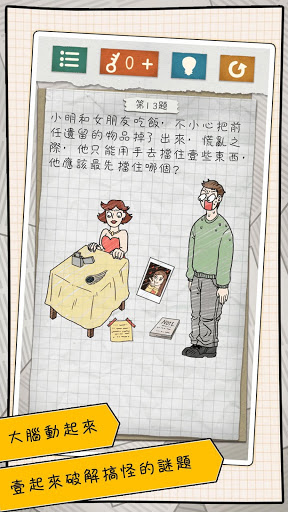 0+
第13題
小明和女朋友吃飯，不小心把前
任遺留的物品掉了出來，慌亂之
際，他只能用手去擋住壹些東西，
他應該最先擋住哪個？
大腦動起來
壹起來破解搞怪的謎題